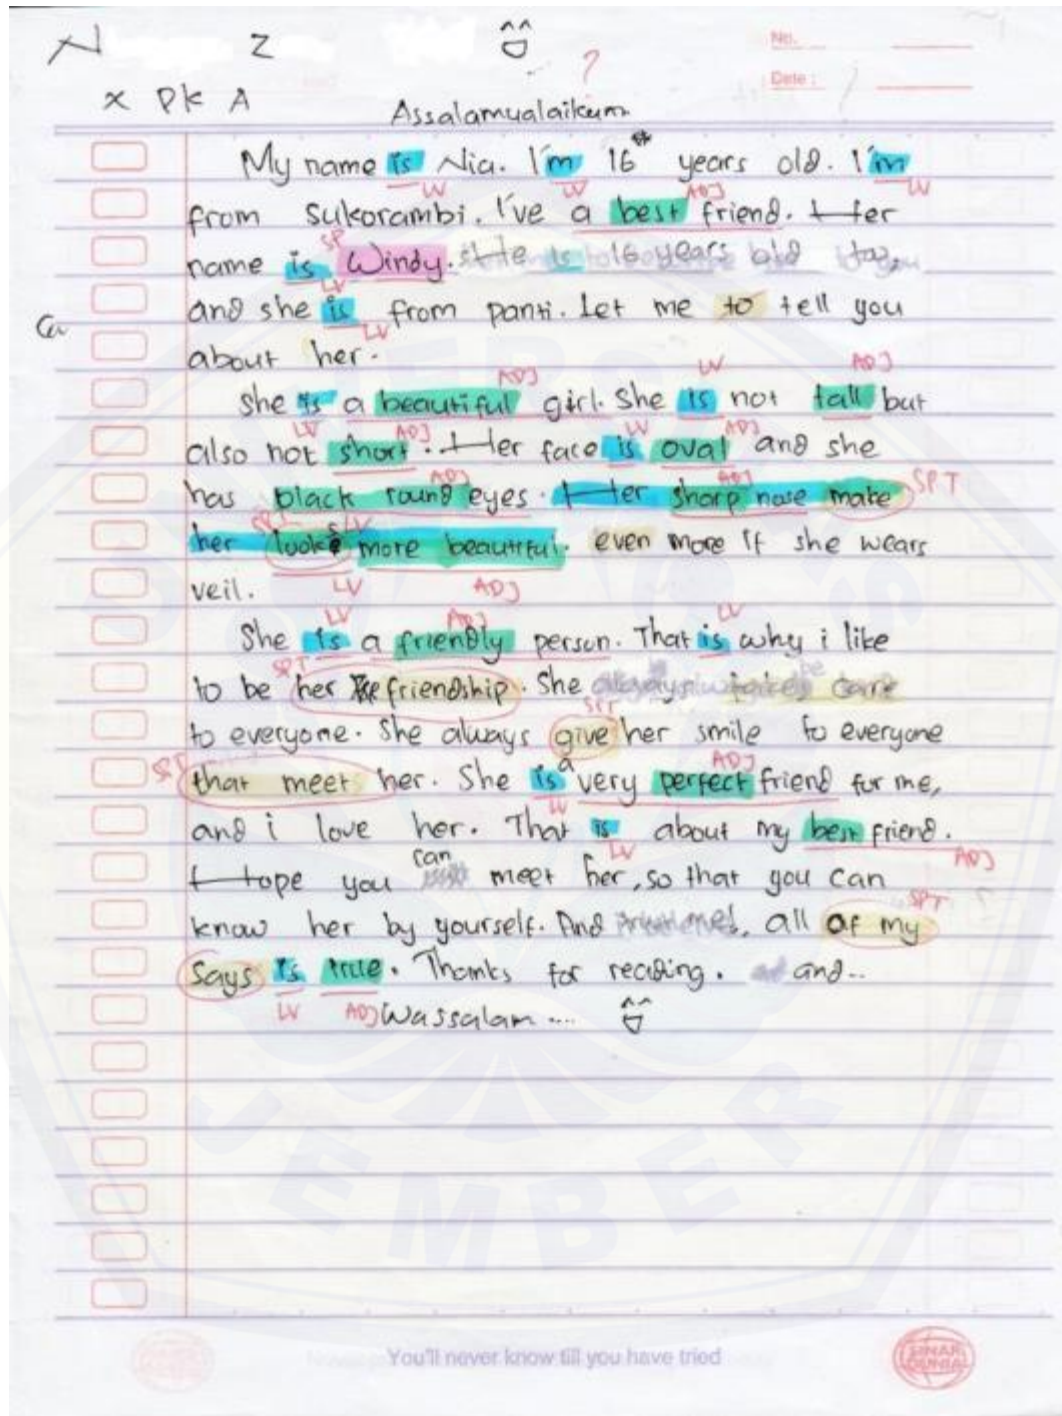 N Z
No.
Date :
?
X PK A
Assalamualaikum
My name is Nia. I'm 16 years old. I'm
LV LV ADJ LV
from Sukorambi. I've a best friend. Her
SP
name is Windy. She is 16 years old too,
LV
and she is from panti. Let me to tell you
LV
about her.
ADJ LV ADJ
She is a beautiful girl. She is not tall but
LV ADJ LV ADJ
also not short. Her face is oval and she
ADJ ADJ
has black round eyes. Her sharp nose make SPT
SPT LV
her looks more beautiful. even more if she wears
veil. LV ADJ
LV ADJ LV
She is a friendly person. That is why i like
SPT
to be her friendship. She care
SPT
to everyone. She always give her smile to everyone
SPT ADJ
that meet her. She is a very perfect friend for me,
LV
and i love her. That is about my best friend.
can LV ADJ
Hope you meet her, so that you can
SPT
know her by yourself. And all of my
says is true. Thanks for reading. and...
LV ADJ Wassalam ....
JEMBER
You'll never know till you have tried
SINAR DUNIA